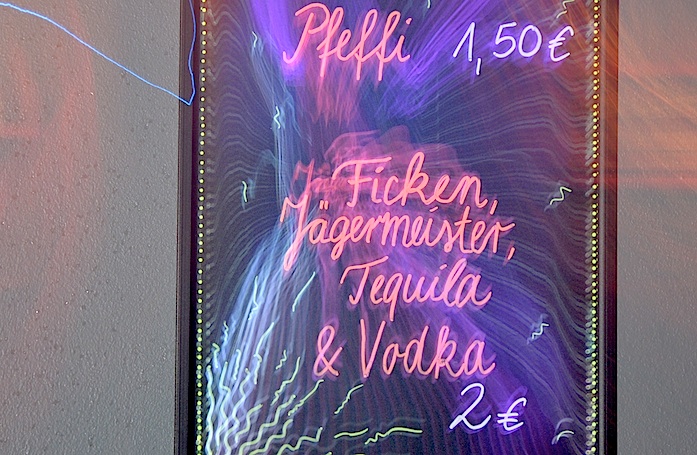 Pfeffi 1,50€
Ficken,
Jägermeister,
Tequila
& Vodka
2€